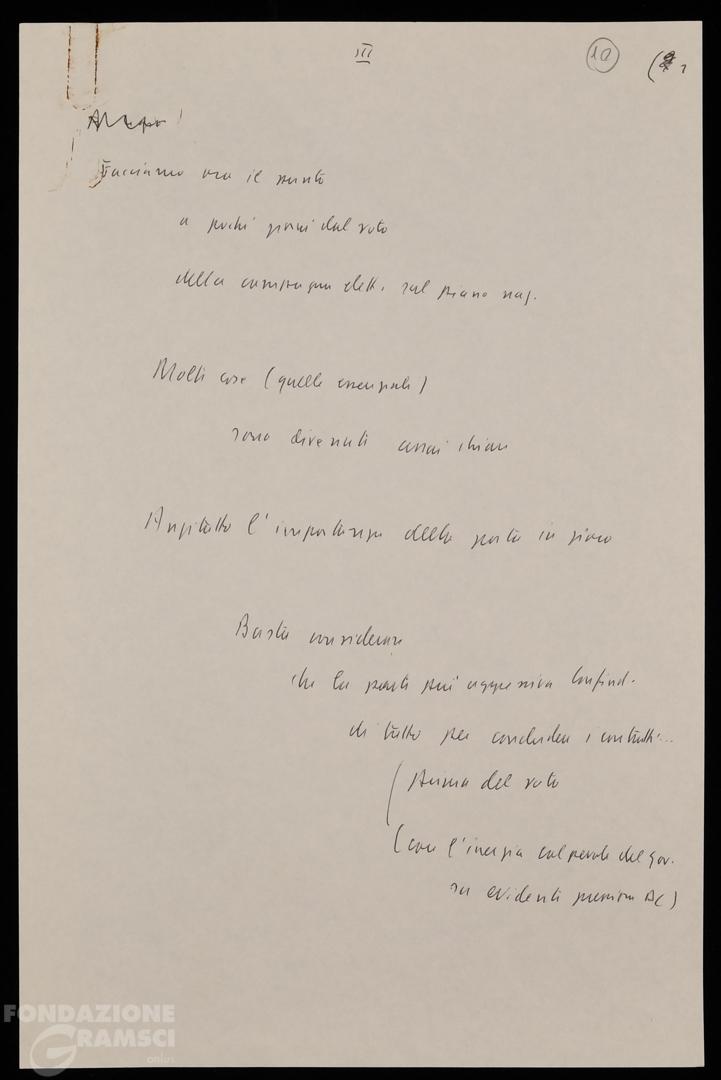 III
10
Facciamo ora il punto
a pochi giorni dal voto
della campagna elett. sul piano naz.
Molte cose (quelle essenziali)
sono divenute assai chiare
Anzitutto l'importanza della posta in gioco
Basta considerare
che la parte più aggressiva Confind.
di tutto per concludere i contratti...
prima del voto
(con l'inerzia colpevole del gov.
su evidenti pressioni DC)
FONDAZIONE
GRAMSCI
onlus